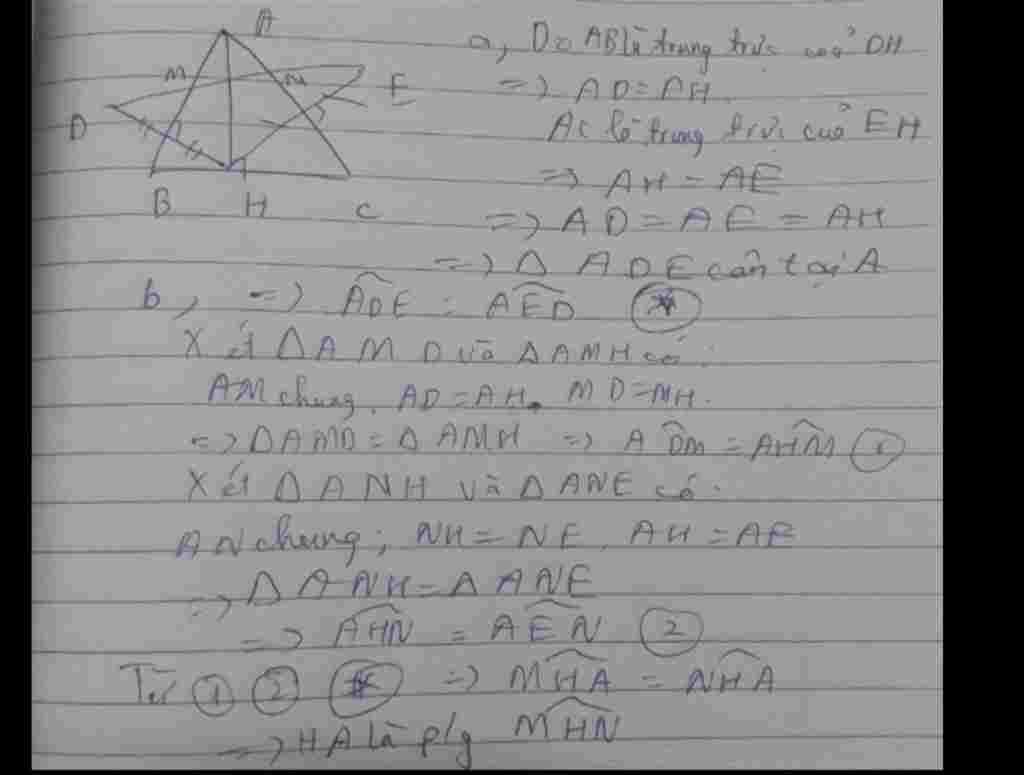 A
M
N
E
D
B H C
a, Do AB là trung trực của DH
=> AD = AH.
AC là trung trực của EH
=> AH = AE
=> AD = AE = AH
=> Δ ADE cân tại A
b, => \widehat{ADE} = \widehat{AED} (*)
Xét Δ AMD và Δ AMH có:
AM chung, AD = AH. MD = MH.
=> ΔAMD = Δ AMH => \widehat{ADM} = \widehat{AHM} (1)
Xét Δ ANH và Δ ANE có.
AN chung; NH = NE, AH = AE
=> Δ ANH = Δ ANE
=> \widehat{AHN} = \widehat{AEN} (2)
Từ (1) (2) (*) => \widehat{MHA} = \widehat{NHA}
=> HA là p/g \widehat{MHN}